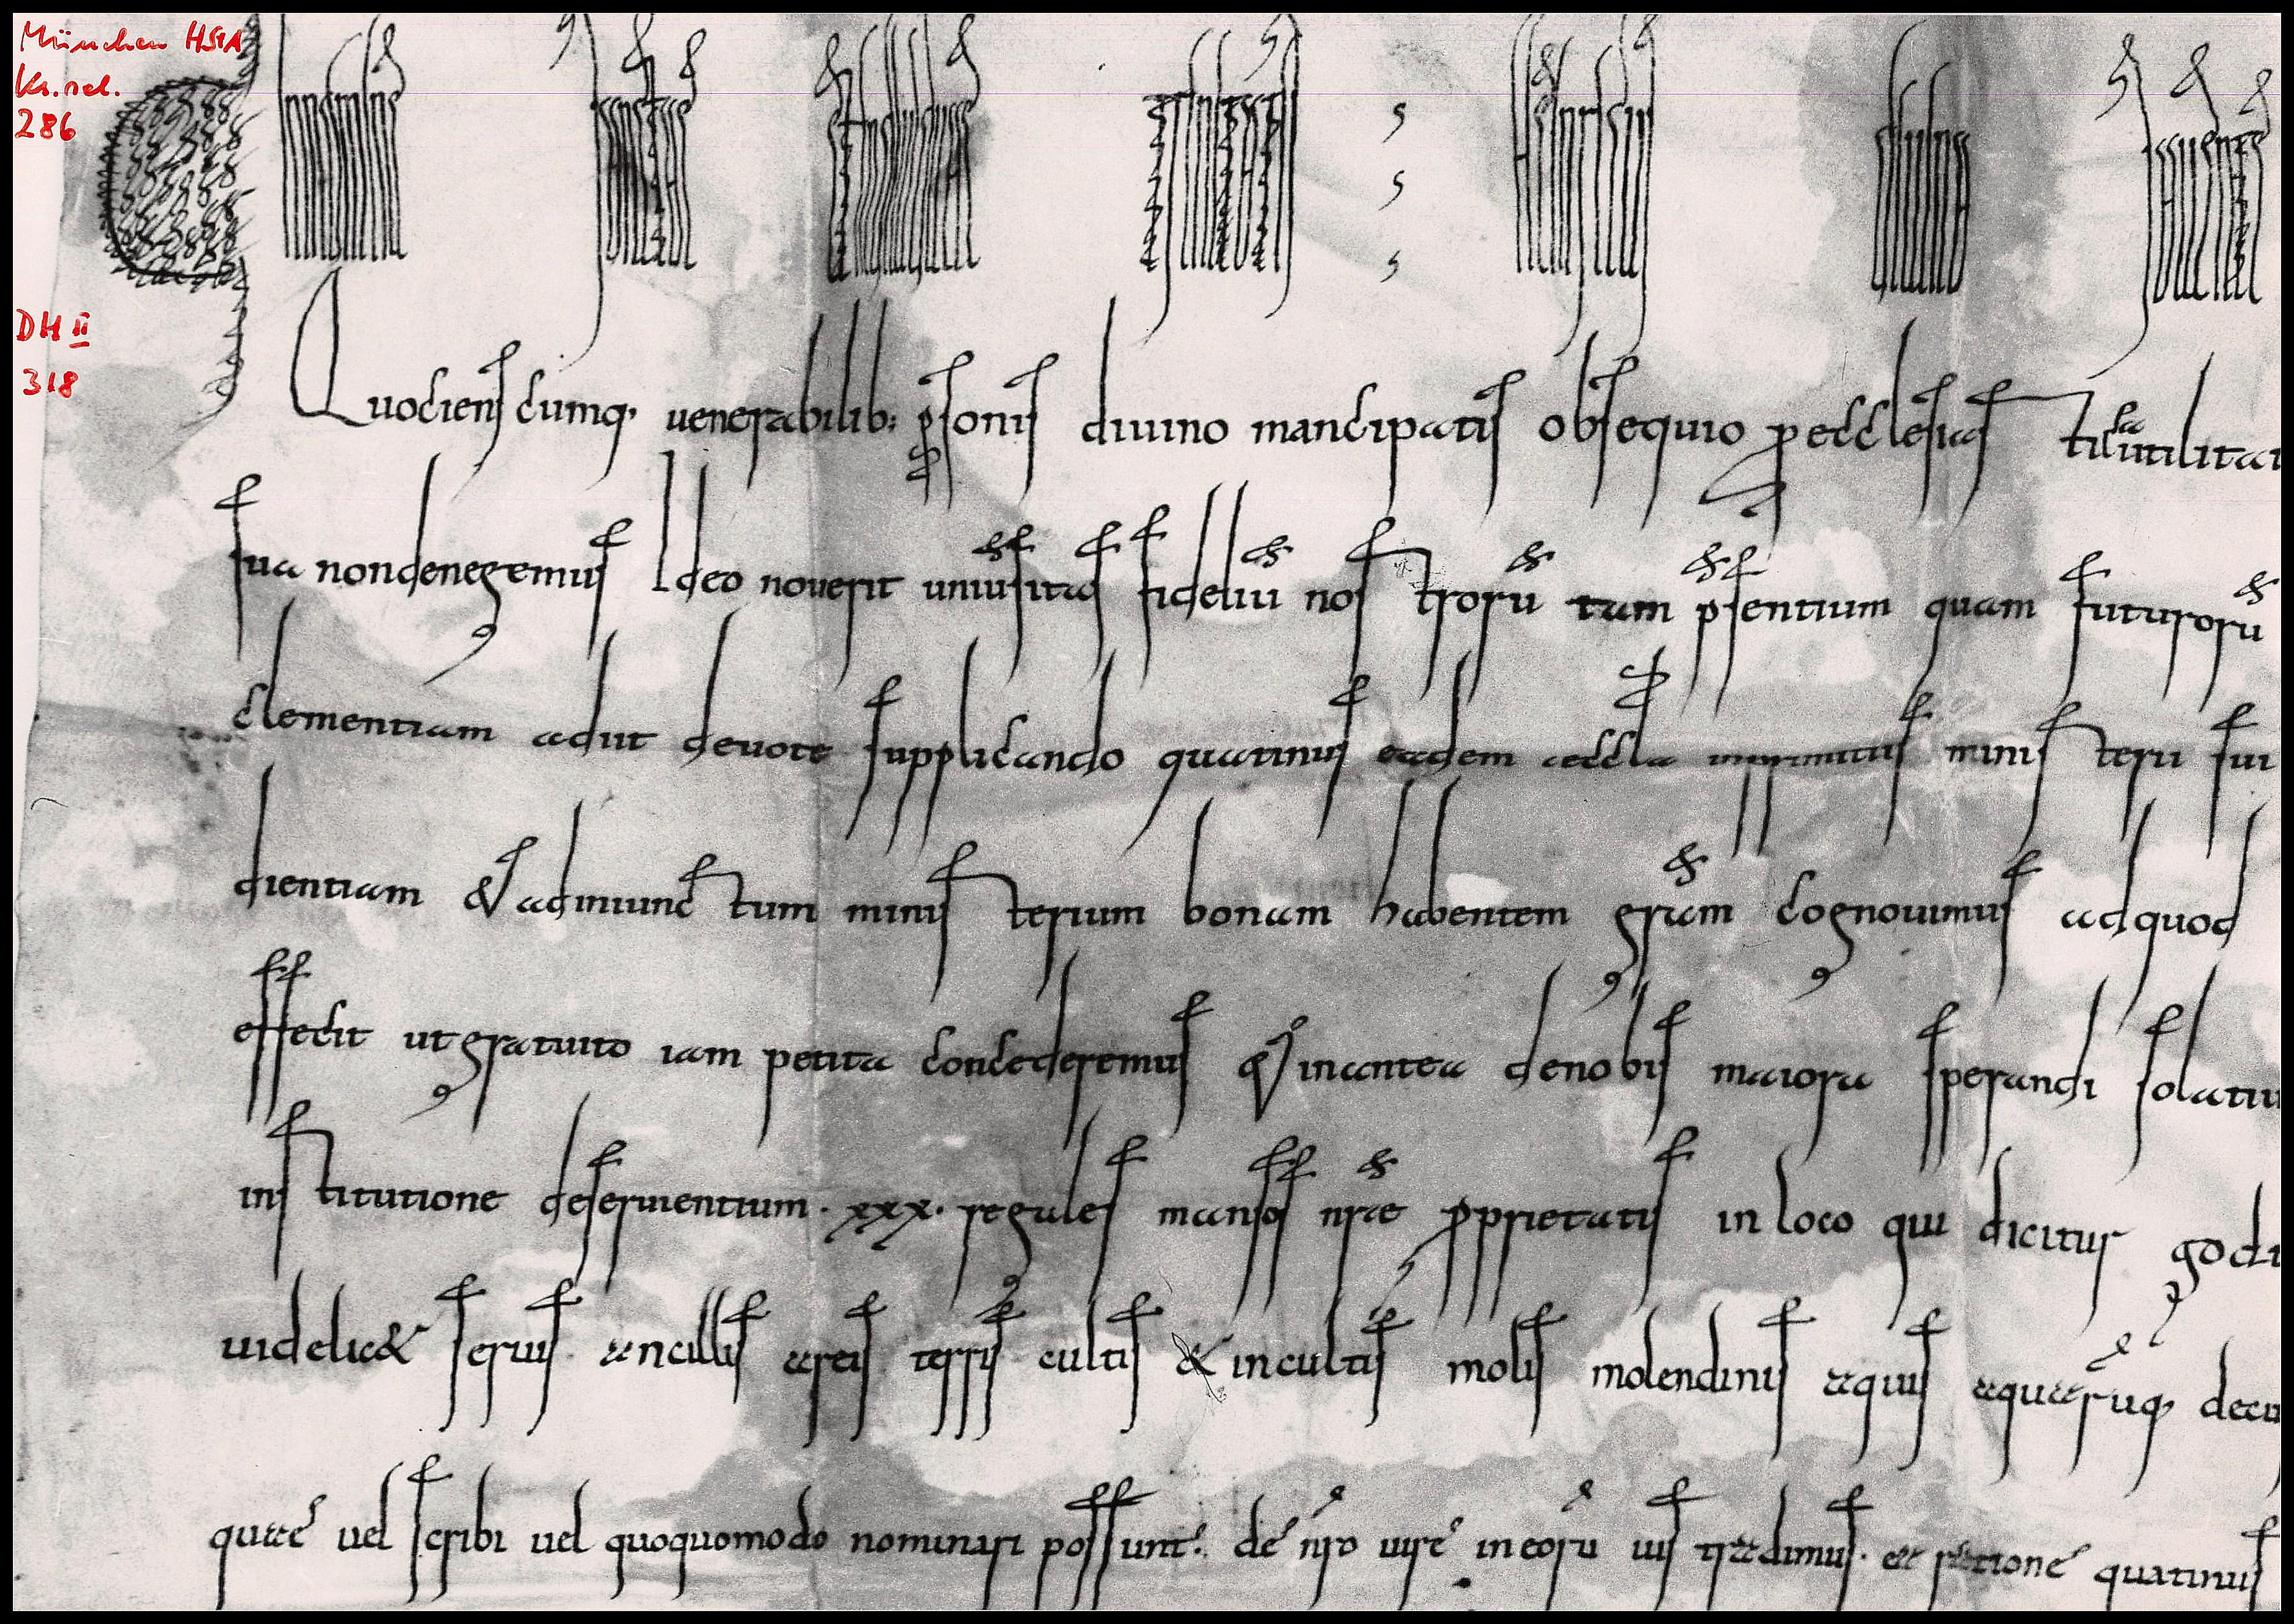 München HStA
Ks. sel.
286
DH II
318
Quociens cumq; uenerabilib; psonis diuino mancipatis obsequio p ecclesias
sua non denegemus Ideo nouerit uniusitas fideliū nostrorū tam psentium quam futurorū
clementiam adiit deuote supplicando quatinus eadem aeccla inprimitus ministerii sui
dientiam & adiunctum ministerium bonam habentem gram cognouimus ad quod
effecit ut gratuito iam petita concederemus & in antea de nobis maiora sperandi
institutione deseruientium · xxx · regales mansos nrae pprietatis in loco qui dicitur
uidelic& seruis ancillis areis terris cultis & incultis molis molendinis aquis aquarūq;
quae uel scribi uel quoquomodo nominari possunt de nro iure in eorū ius tradimus · ea ratione quatinus